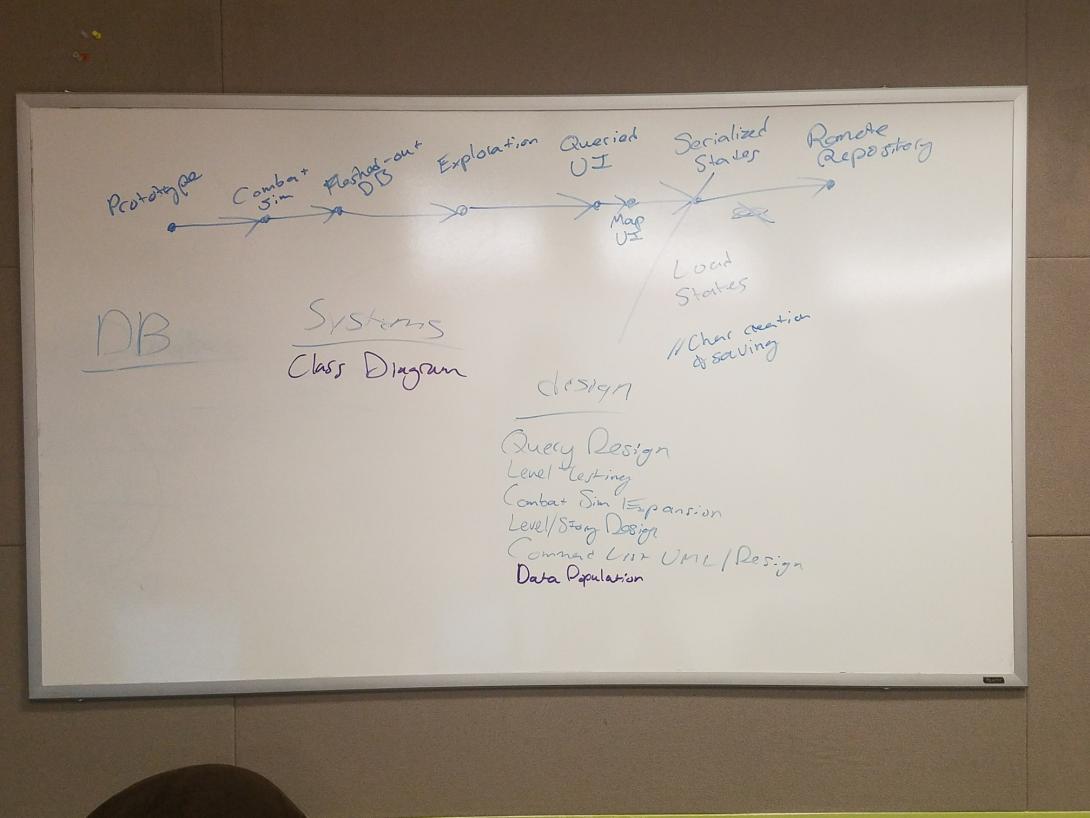 Prototype
Combat
Sim
Fleshed-out
DB
Exploration
Queried
UI
Map
UI
Serialized
States
Remote
Repository
Load
States
//Char creation
& saving
DB
Systems
Class Diagram
design
Query Design
Level testing
Combat Sim Expansion
Level/Story Design
Command List UML/Design
Data Population